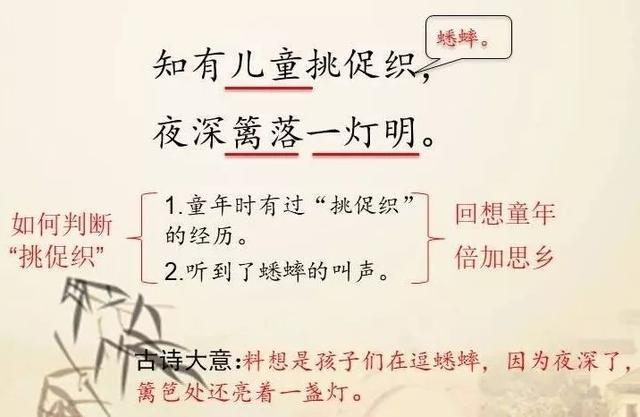 蟋蟀。
知有儿童挑促织，
夜深篱落一灯明。
如何判断
“挑促织”
1.童年时有过“挑促织”
的经历。
2.听到了蟋蟀的叫声。
回想童年
倍加思乡
古诗大意:料想是孩子们在逗蟋蟀，因为夜深了，
篱笆处还亮着一盏灯。